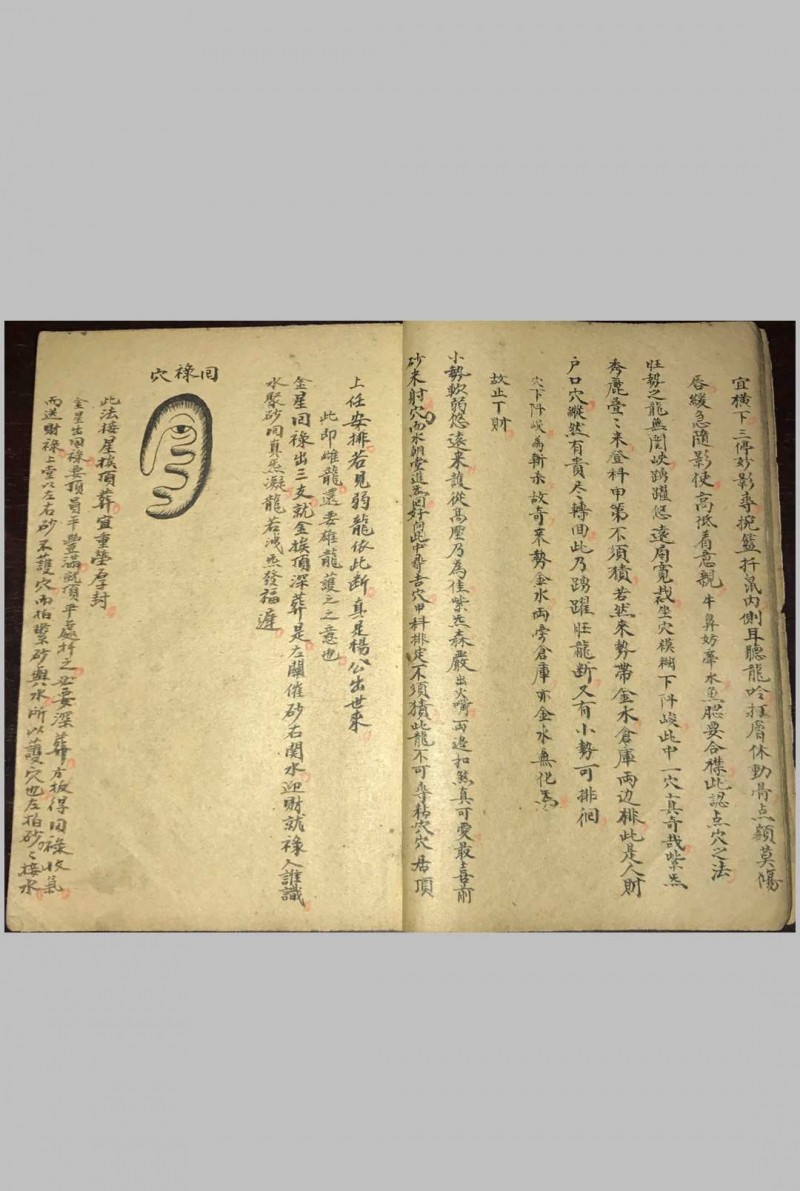 宜橫下三停妙影專掟籃扦鼠肉側耳聽龍吟揠層休動骨点顙莫傷
唇緩急隨影使高抵看意親牛鼻妨牽水魚腮要合襟此認点穴之法
旺勢之龍無関峽踴躍悠遠局寬哉坐穴模糊下阡峻此中一穴十真奇哉紫炁
秀麗疊〻来登科甲第不須猜若然来勢帶金木倉庫両边排此是人財
戸口穴縱然有貴尽轉回此乃踴躍旺龍断又有小勢可排徊
穴下阡峻為斬赤故奇来勢金水両旁倉庫亦金水無化
故止丁財
小勢軟弱悠遠来護從髙壓乃為佳紫炁森嚴出火嘴両邊扣煞真可愛最喜前
砂来射穴而水朝堂進焉回好向此中尋吉穴甲科排定不須猜此龍不可尋粘穴穴居頂
上任安排若見弱龍依此断真是楊公出世来
此即雌龍還要雄龍護之之意也
金星回祿出三支就金挨頂深葬是左關催砂右関水迎財就祿人誰識
水聚砂回真炁凝龍若洩炁發福遲
回祿穴
此法接星挨頂葬宜重墊厚封
金星出回祿要頂員平豊滿就頂平處扦之必要深葬方扳得回祿收氣
而送財祿上堂以左右砂不護穴而拍緊砂與水所以護穴也左拍砂〻接水